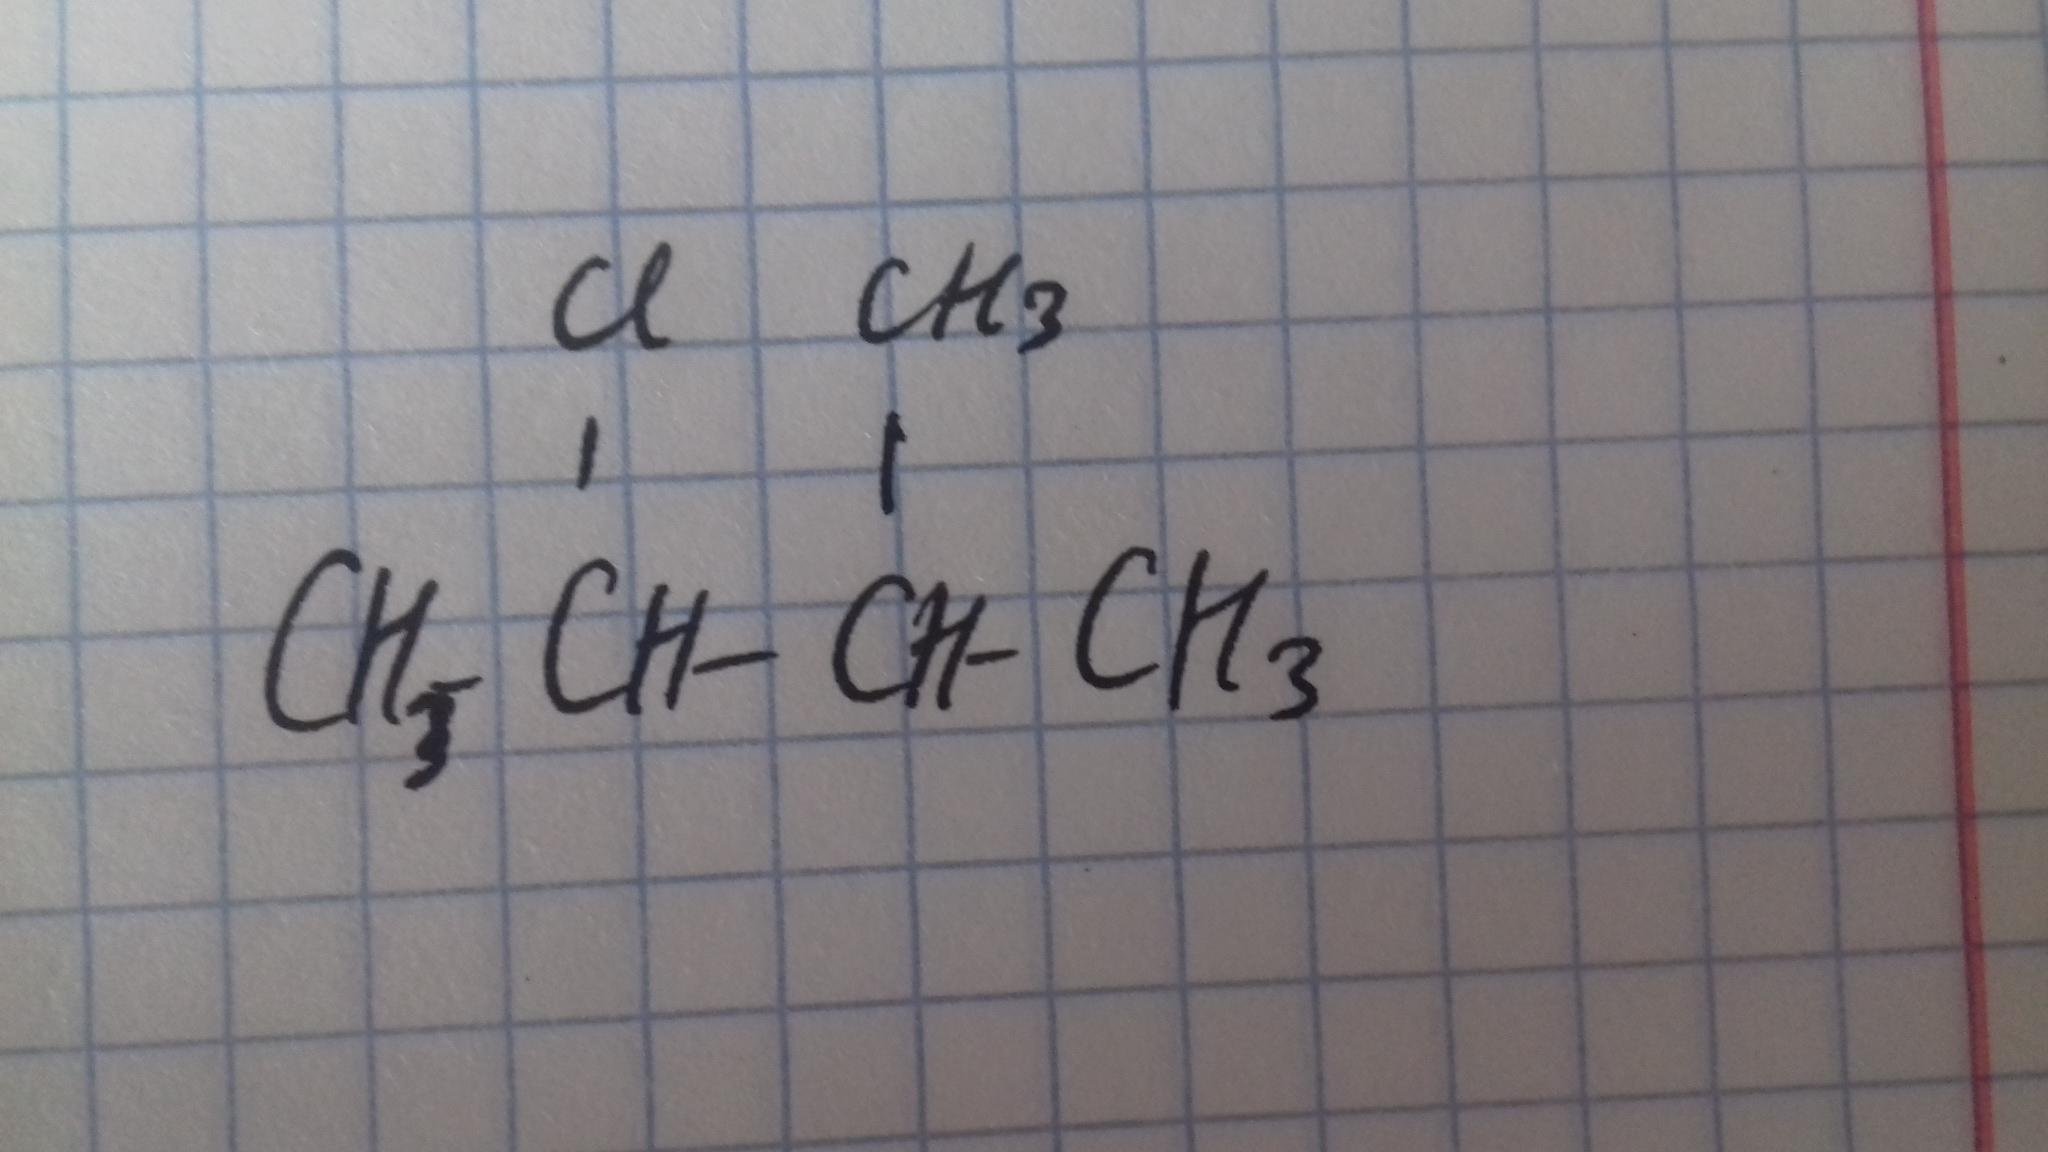 Cl CH3
CH3-CH-CH-CH3